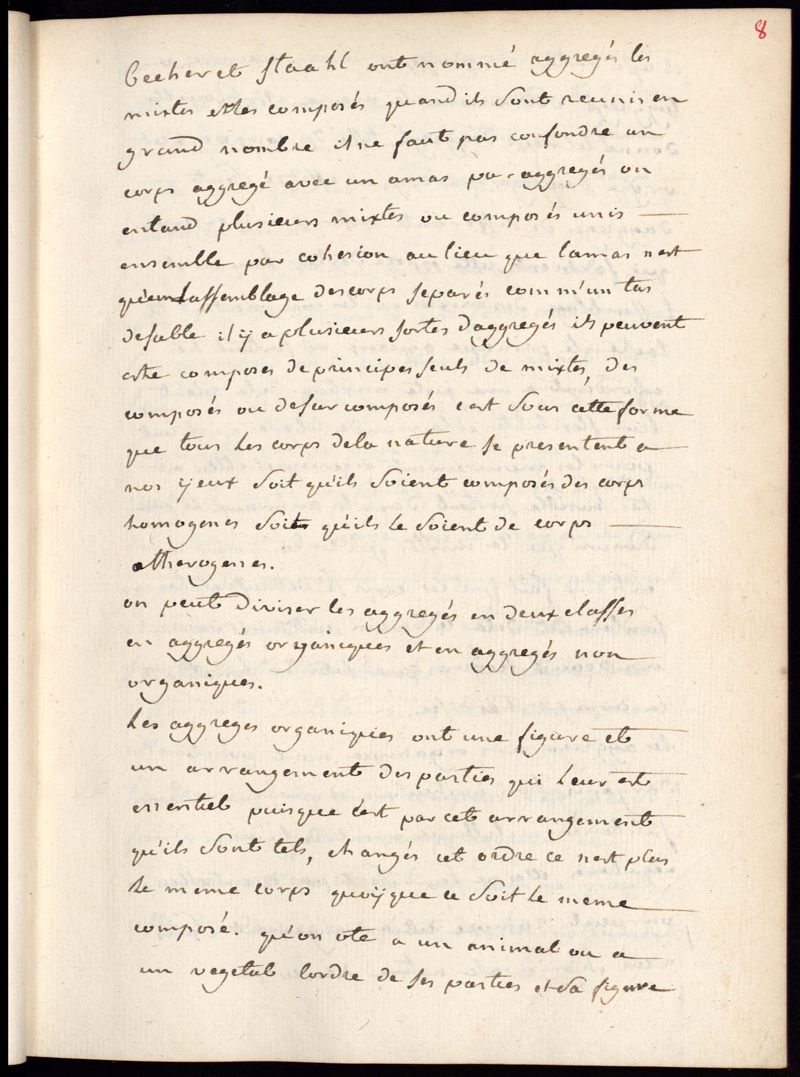 8
becher et staahl ont nommé aggregés les
mixtes et les composés quand ils sont reunis en
grand nombre il ne faut pas confondre un
corps aggregé avec un amas par aggregés on
entand plusieurs mixtes ou composés unis
ensemble par cohesion au lieu que lamas n'est
qu'un assemblage des corps separés comm'un tas
de sable il ÿ a plusieurs sortes d'aggregés ils peuvent
estre composes de principes seuls de mixtes, des
composés ou de surcomposés c'est sous cette forme
que tous les corps de la nature se presentent a
nos ÿeux soit qu'ils soient composés des corps
homogenes soit qu'ils le soient de corps
etherogenes.
on peut diviser les aggregés en deux classes
en aggregés organiques et en aggregés non
organiques.
Les aggreges organiques ont une figure et
un arrangement des parties qui leur est
essentiel puisque c'est par cet arrangement
qu'ils sont tels, changés cet ordre ce n'est plus
le meme corps quoÿque ce soit le meme
composé. qu'on ote a un animal ou a
un vegetal lordre de ses parties et sa figure